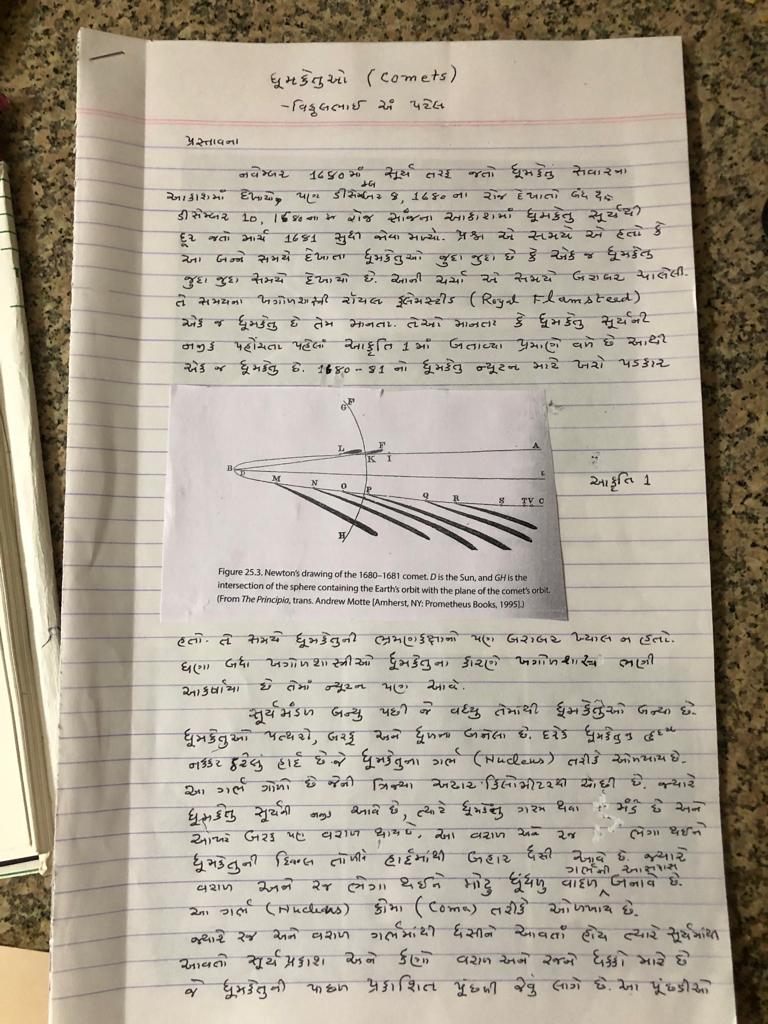 ધૂમકેતુઓ (Comets)
-વિઠ્ઠલભાઈ અં પટેલ
પ્રસ્તાવના
નવેમ્બર 1680માં સૂર્ય તરફ જતો ધૂમકેતુ સવારના
આકાશમાં દેખાયો, પણ ડીસેમ્બર 8, 1680 ના રોજ દેખાતો બંધ
ડીસેમ્બર 10, 1680ના રોજ સાંજના આકાશમાં ધૂમકેતુ સૂર્યથી
દૂર જતો માર્ચ 1681 સુધી જોવા મળ્યો. પ્રશ્ન એ સમયે એ હતો કે
આ બન્ને સમયે દેખાતા ધૂમકેતુઓ જુદા જુદા છે કે એક જ ધૂમકેતુ
જુદા જુદા સમયે દેખાયો છે. આની ચર્ચા એ સમયે બરાબર ચાલેલી.
તે સમયના ખગોળશાસ્ત્રી રૉયલ ફ્લેમસ્ટીડ (Royal Flamstead)
એક જ ધૂમકેતુ છે તેમ માનતા. તેઓ માનતા કે ધૂમકેતુ સૂર્યની
નજીક પહોંચતા પહેલાં આકૃતિ 1 માં બતાવ્યા પ્રમાણે વળે છે આથી
એક જ ધૂમકેતુ છે. 1680-81 નો ધૂમકેતુ ન્યૂટન માટે ખરો પડકાર
G F
L F A
K I
B D E
M N O P Q R S TV C
H
આકૃતિ 1
Figure 25.3. Newton's drawing of the 1680–1681 comet. D is the Sun, and GH is the
intersection of the sphere containing the Earth's orbit with the plane of the comet's orbit.
(From The Principia, trans. Andrew Motte [Amherst, NY: Prometheus Books, 1995].)
હતો. તે સમયે ધૂમકેતુની ભ્રમણકક્ષાનો પણ બરાબર ખ્યાલ ન હતો.
ઘણા બધા ખગોળશાસ્ત્રીઓ ધૂમકેતુના કારણે ખગોળશાસ્ત્ર ભણી
આકર્ષાયા છે તેમાં ન્યૂટન પણ આવે.
સૂર્યમંડળ બન્યુ પછી જે વધ્યુ તેમાંથી ધૂમકેતુઓ બન્યા છે.
ધૂમકેતુઓ પત્થરો, બરફ અને ધૂળના બનેલા છે. દરેક ધૂમકેતુનુ
નક્કર ઠરેલું હાર્દ છે જે ધૂમકેતુના ગર્ભ (Nucleus) તરીકે ઓળખાય છે.
આ ગર્ભ ગોળો છે જેની ત્રિજ્યા અઢાર કિલોમીટરથી ઓછી છે. જ્યારે
ધૂમકેતુ સૂર્યની નજીક આવે છે, ત્યારે ધૂમકેતુ ગરમ થવા માંડે છે અને
બરફ પણ વરાળ થાય છે. આ વરાળ અને રજ ભેગા થઈને
ધૂમકેતુની દિવાલ તોડીને હાર્દમાંથી બહાર ધસી આવે છે. જ્યારે
વરાળ અને રજ ભેગા થઈને મોટુ ધૂંધળુ વાદળ ગર્ભની આસપાસ બનાવે છે.
આ ગર્ભ (Nucleus) કોમા (Coma) તરીકે ઓળખાય છે.
જ્યારે રજ અને વરાળ ગર્ભમાંથી ધસીને આવતાં હોય ત્યારે સૂર્યમાંથી
આવતો સૂર્યપ્રકાશ અને કણો વરાળ અને રજને ધક્કો મારે છે
જે ધૂમકેતુની પાછળ પ્રકાશિત પૂંછડી જેવું લાગે છે. આ પૂંછડીઓ